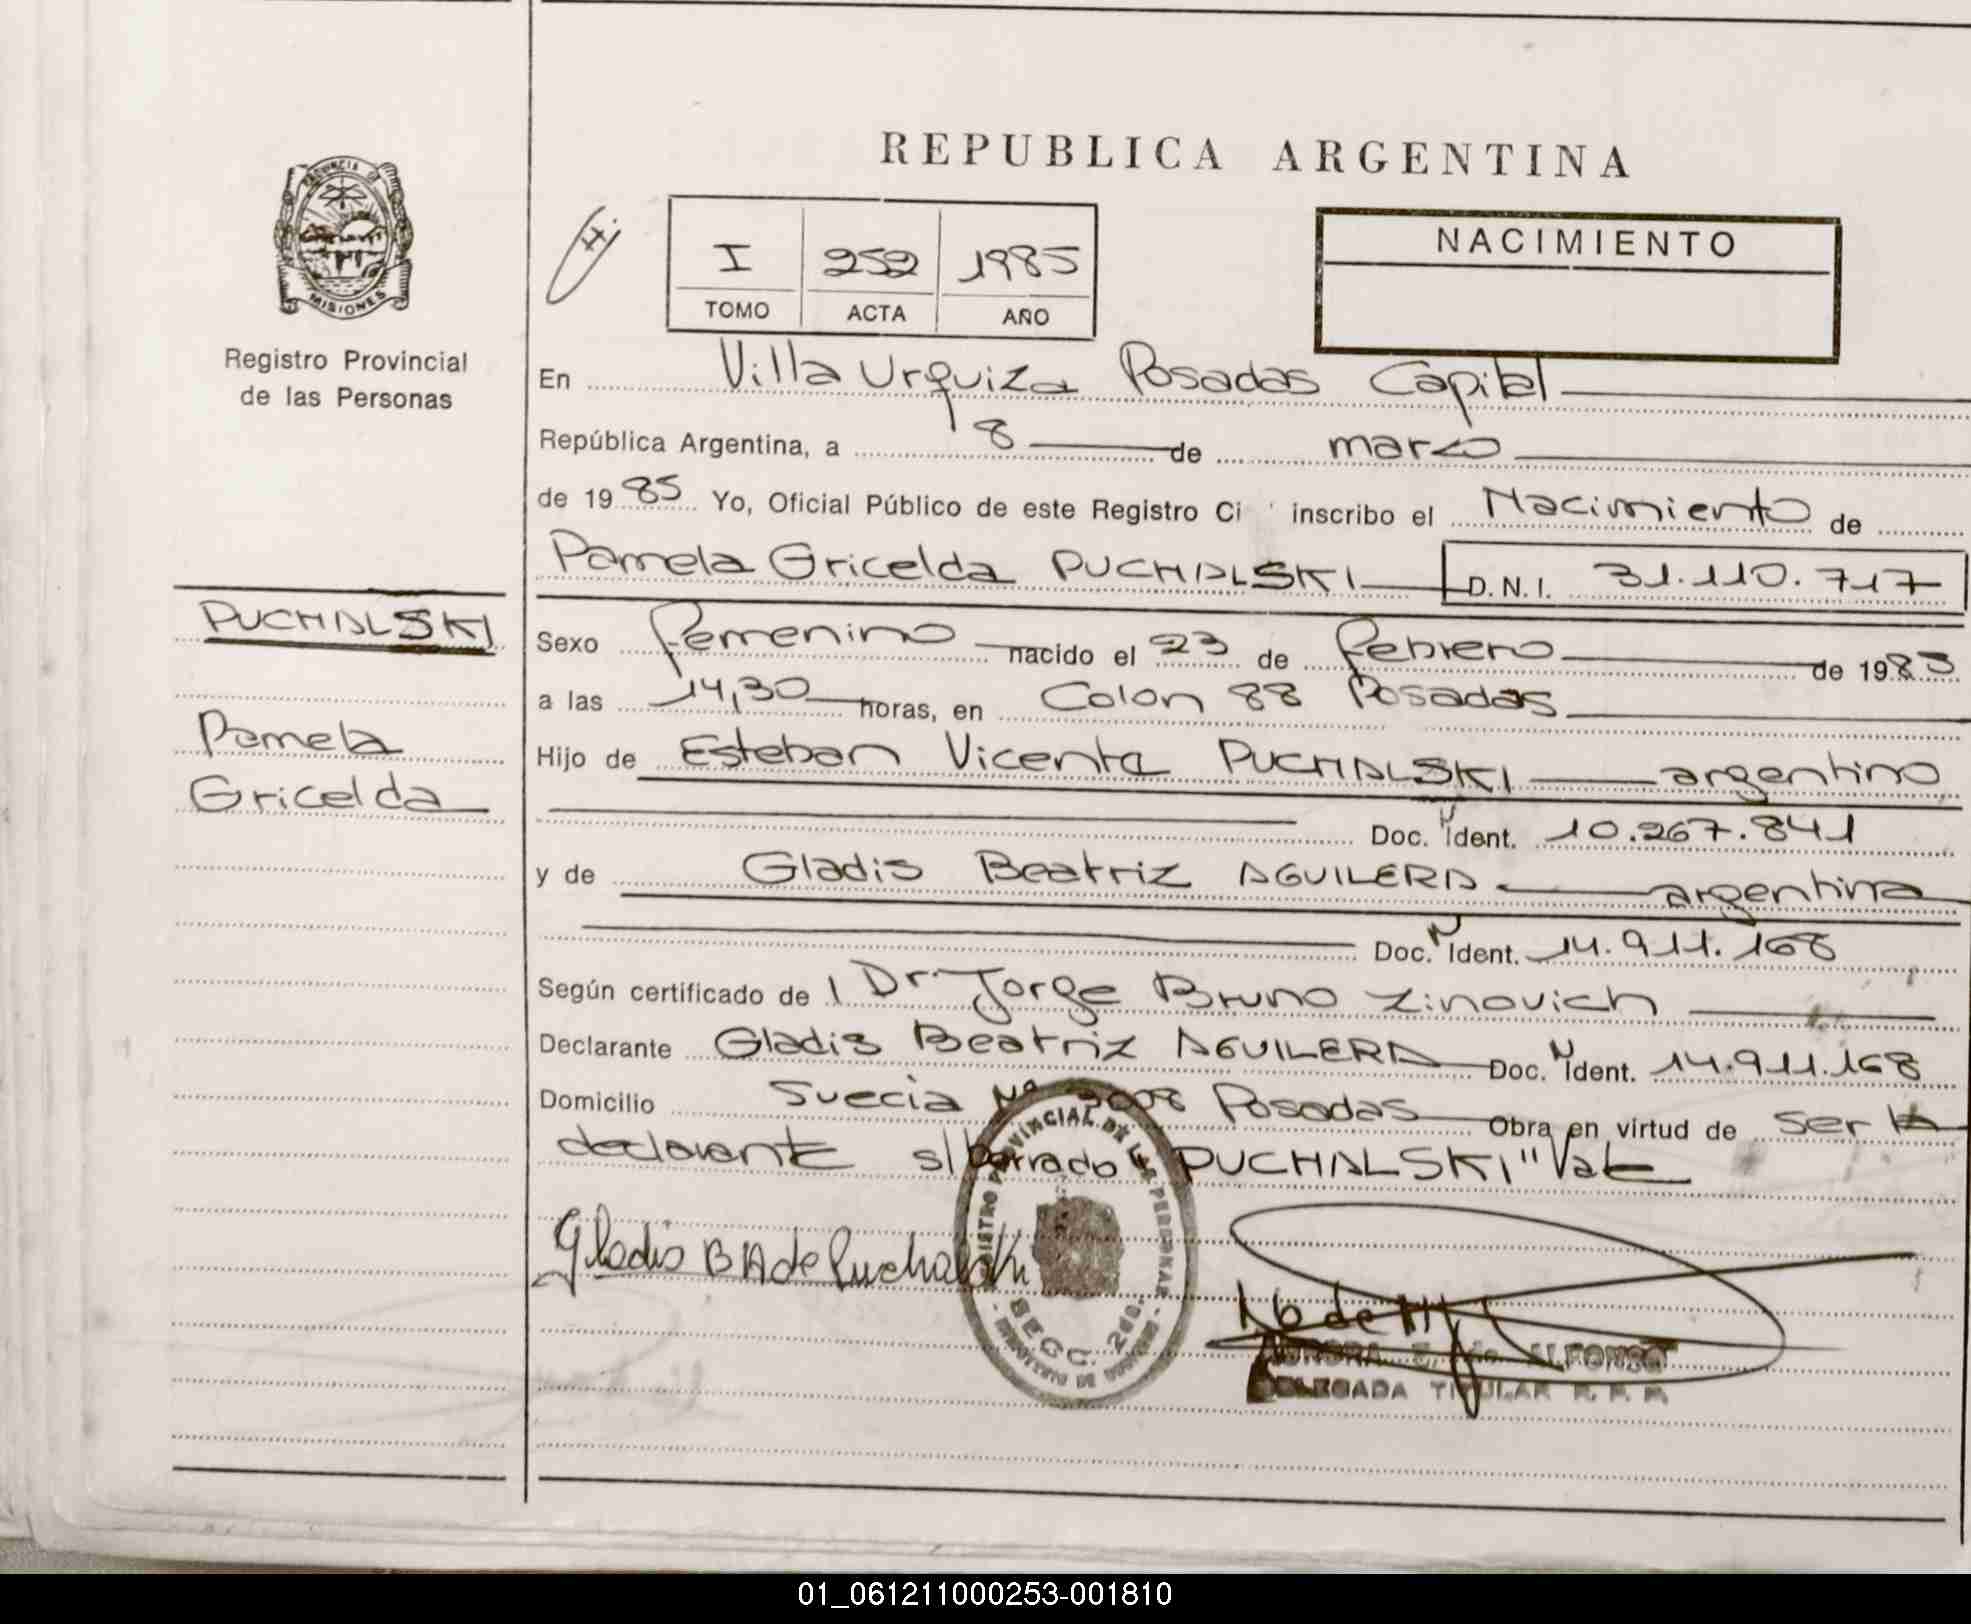 REPUBLICA ARGENTINA
PROVINCIA DE
MISIONES
Registro Provincial
de las Personas
I 252 1985
TOMO ACTA AÑO
NACIMIENTO
En Villa Urquiza Posadas Capital
República Argentina, a 8 de marzo
de 1985 Yo, Oficial Público de este Registro Ci inscribo el Nacimiento de
Pamela Gricelda PUCHALSKI D.N.I. 31.110.717
PUCHALSKI
Pamela
Gricelda
Sexo femenino nacido el 23 de febrero de 1985
a las 14,30 horas, en Colon 88 Posadas
Hijo de Esteban Vicente PUCHALSKI argentino
Doc. N Ident. 10.267.841
y de Gladis Beatriz AGUILERA argentina
Doc. N Ident. 14.911.168
Según certificado de l Dr. Jorge Bruno Zinovich
Declarante Gladis Beatriz AGUILERA Doc. N Ident. 14.911.168
Domicilio Suecia Nº 3008 Posadas Obra en virtud de ser la
declarante s/borrado "PUCHALSKI" Vale
Gladis B A de Puchalski
REGISTRO PROVINCIAL DE LAS PERSONAS
SECC.
ALFONSO
DELEGADA TITULAR R. P. P.
01_061211000253-001810